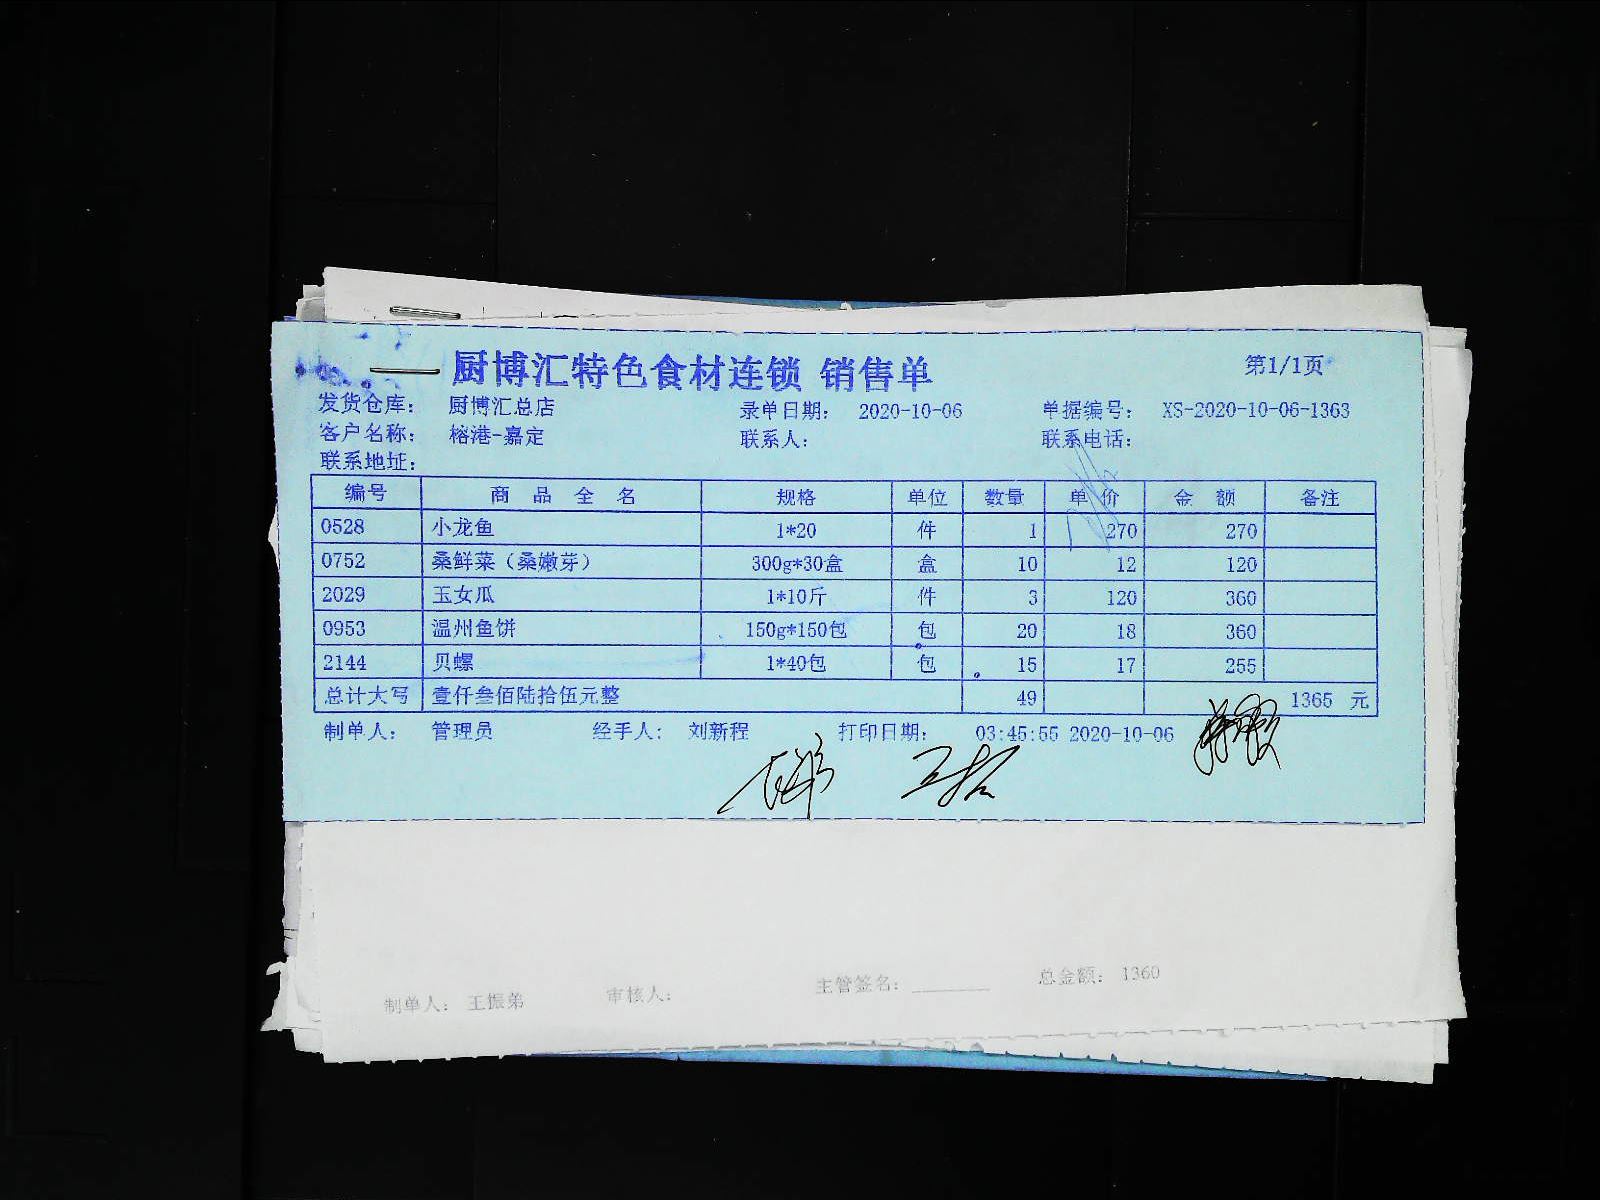 厨博汇特色食材连锁 销售单 第1/1页
发货仓库: 厨博汇总店 录单日期: 2020-10-06 单据编号: XS-2020-10-06-1363
客户名称: 榕港-嘉定 联系人: 联系电话:
联系地址:
编号 商品全名 规格 单位 数量 单价 金额 备注
0528 小龙鱼 1*20 件 1 270 270
0752 桑鲜菜（桑嫩芽） 300g*30盒 盒 10 12 120
2029 玉女瓜 1*10斤 件 3 120 360
0953 温州鱼饼 150g*150包 包 20 18 360
2144 贝螺 1*40包 包 15 17 255
总计大写 壹仟叁佰陆拾伍元整 49 1365 元
制单人: 管理员 经手人: 刘新程 打印日期: 03:45:55 2020-10-06
制单人: 王振弟 审核人: 主管签名: 总金额: 1360